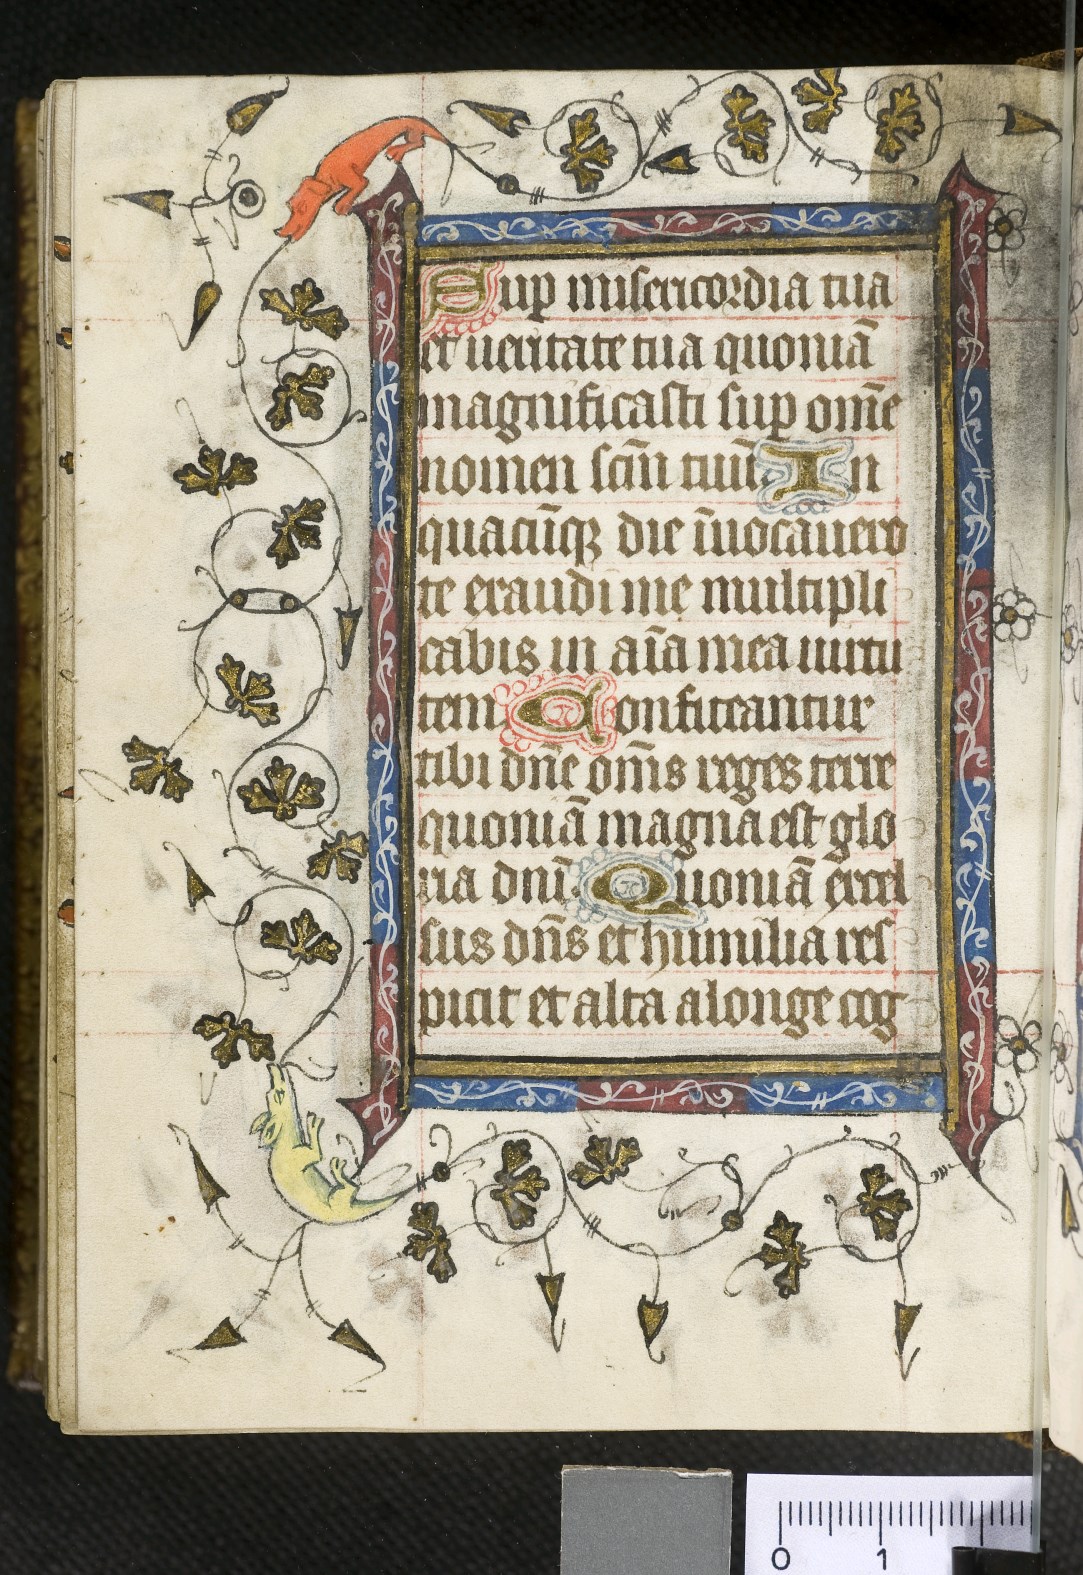 Sup misericordia tua
et ueritate tua quoniā
magnificasti sup om̄e
nomen sc̄m tuū. In
quacūqꝫ die īuocauero
te exaudi me multipli
cabis in aīa mea uirtu
tem Confiteantur
tibi dn̄e om̄s reges terre
quoniā magna est glo
ria dn̄i. Quoniā excel
sus dn̄s et humilia res
picit et alta a longe cog
0 1